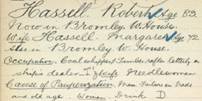 Hassell Robert Age 83.
Now in Bromley W. House.
Wife Hassell Margaret Age 72
Also in Bromley W. House.
Occupation Coal whipper Lumber latterly a
dealer Wife Needlewoman
Cause of Pauperization Man failure in trade
and old age. Woman Drink D